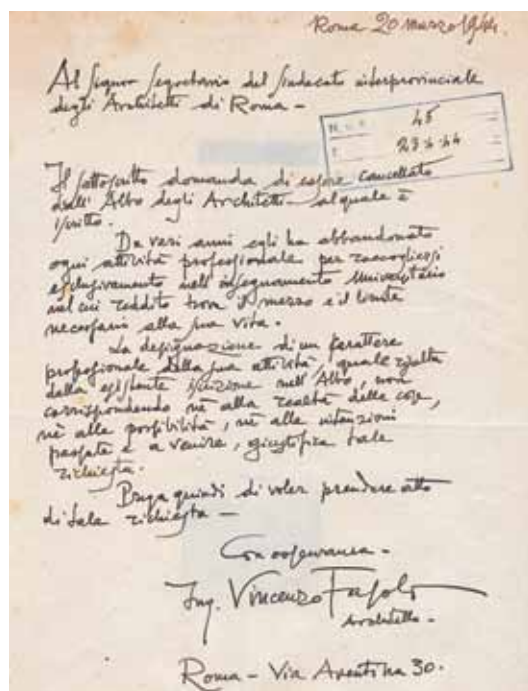 Roma 20 marzo 1944.
Al Signor Segretario del Sindacato interprovinciale
degli Architetti di Roma –
45
23-4-44
Il sottoscritto domanda di essere cancellato
dall'Albo degli Architetti – al quale è
iscritto.
Da vari anni egli ha abbandonato
ogni attività professionale per raccogliersi
esclusivamente nell'insegnamento Universitario
nel cui reddito trova il mezzo e il limite
necessario alla sua vita.
La designazione di un carattere
professionale della sua attività, quale risulta
della esistente iscrizione nell'Albo, non
corrispondendo nè alla realtà delle cose,
nè alle possibilità, nè alle intenzioni
passate e a venire, giustifica tale
richiesta.
Prega quindi di voler prendere atto
di tale richiesta –
Con osservanza –
Ing. Vincenzo Fasolo
Architetto –
Roma – Via Aventina 30.